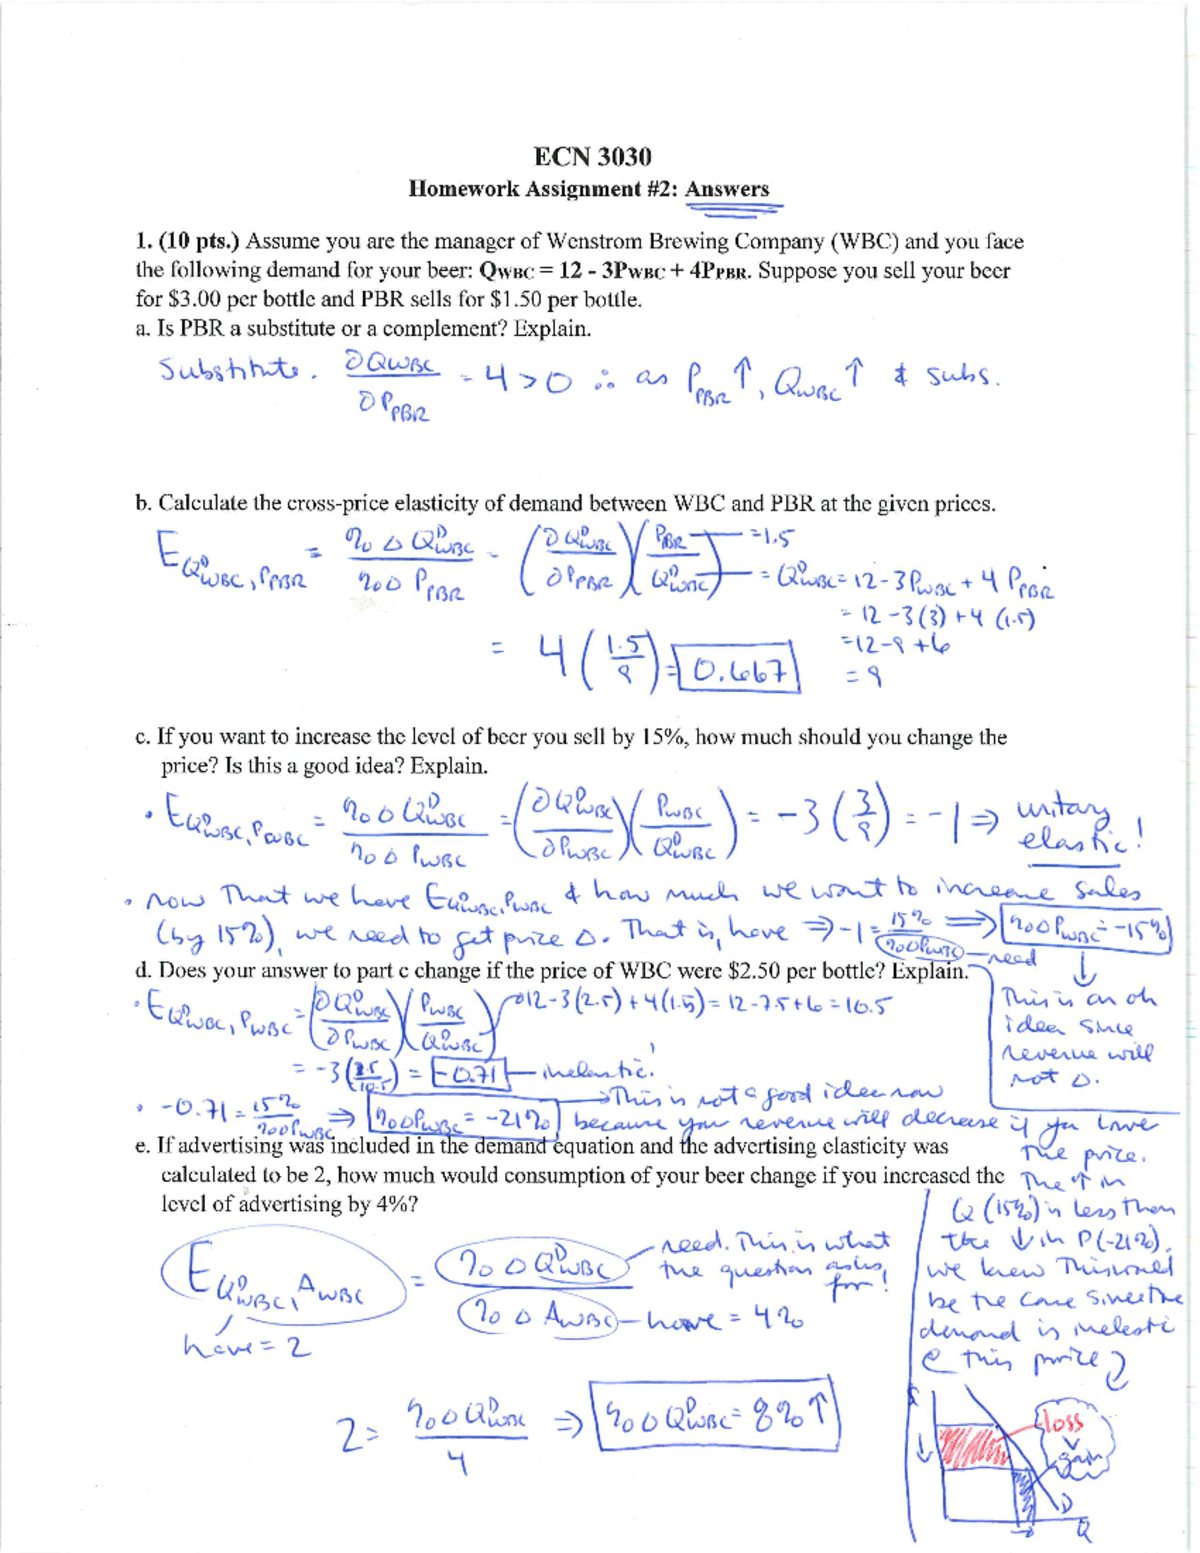 ECN 3030
Homework Assignment #2: Answers
1. (10 pts.) Assume you are the manager of Wenstrom Brewing Company (WBC) and you face
the following demand for your beer: QWBC = 12 - 3PWBC + 4PPBR. Suppose you sell your beer
for $3.00 per bottle and PBR sells for $1.50 per bottle.
a. Is PBR a substitute or a complement? Explain.
Substitute. ∂QWBC/∂PPBR = 4 > 0 ∴ as PPBR ↑, QWBC ↑ & subs.
b. Calculate the cross-price elasticity of demand between WBC and PBR at the given prices.
E Q^D WBC, PPBR = %Δ Q^D WBC / %Δ PPBR = (∂Q^D WBC / ∂PPBR)(PPBR / Q^D WBC) = 1.5
= Q^D WBC = 12 - 3PWBC + 4 PPBR
= 12 - 3(3) + 4(1.5)
= 12 - 9 + 6
= 4 (1.5/9) = 0.667
= 9
c. If you want to increase the level of beer you sell by 15%, how much should you change the
price? Is this a good idea? Explain.
• E Q^D WBC, PWBC = %Δ Q^D WBC / %Δ PWBC = (∂Q^D WBC / ∂PWBC)(PWBC / Q^D WBC) = -3 (3/9) = -1 ⇒ unitary
elastic!
• now that we have E Q^D WBC, PWBC & how much we want to increase sales
(by 15%), we need to get price Δ. That is, have ⇒ -1 = 15% / %ΔPWBC ⇒ %ΔPWBC = -15%
need
d. Does your answer to part c change if the price of WBC were $2.50 per bottle? Explain.
• E Q^D WBC, PWBC = (∂Q^D WBC / ∂PWBC)(PWBC / Q^D WBC) 12 - 3(2.5) + 4(1.5) = 12 - 7.5 + 6 = 10.5
This is an oh
idea since
revenue will
not Δ.
= -3 (2.5/10.5) = -0.71 inelastic!
• -0.71 = 15% / %ΔPWBC ⇒ %ΔPWBC = -21% → This is not a good idea now
because your revenue will decrease if you lower
the price.
The ↑ in
Q (15%) is less than
the ↓ in P (-21%).
we knew this would
be the case since the
demand is inelastic
@ this price
e. If advertising was included in the demand equation and the advertising elasticity was
calculated to be 2, how much would consumption of your beer change if you increased the
level of advertising by 4%?
E Q^D WBC, AWBC = %Δ Q^D WBC / %Δ AWBC
need. This is what
the question asks
for!
have = 4%
have = 2
2 = %Δ Q^D WBC / 4 ⇒ %Δ Q^D WBC = 8% ↑
loss
gain
D
Q